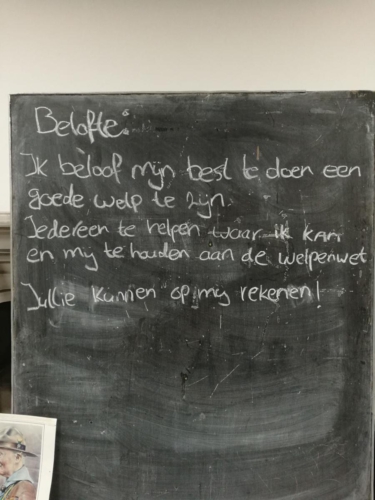 Belofte:
Ik beloof mijn best te doen een
goede welp te zijn.
Iedereen te helpen waar ik kan
en my te houden aan de welpenwet
Jullie kunnen op my rekenen!